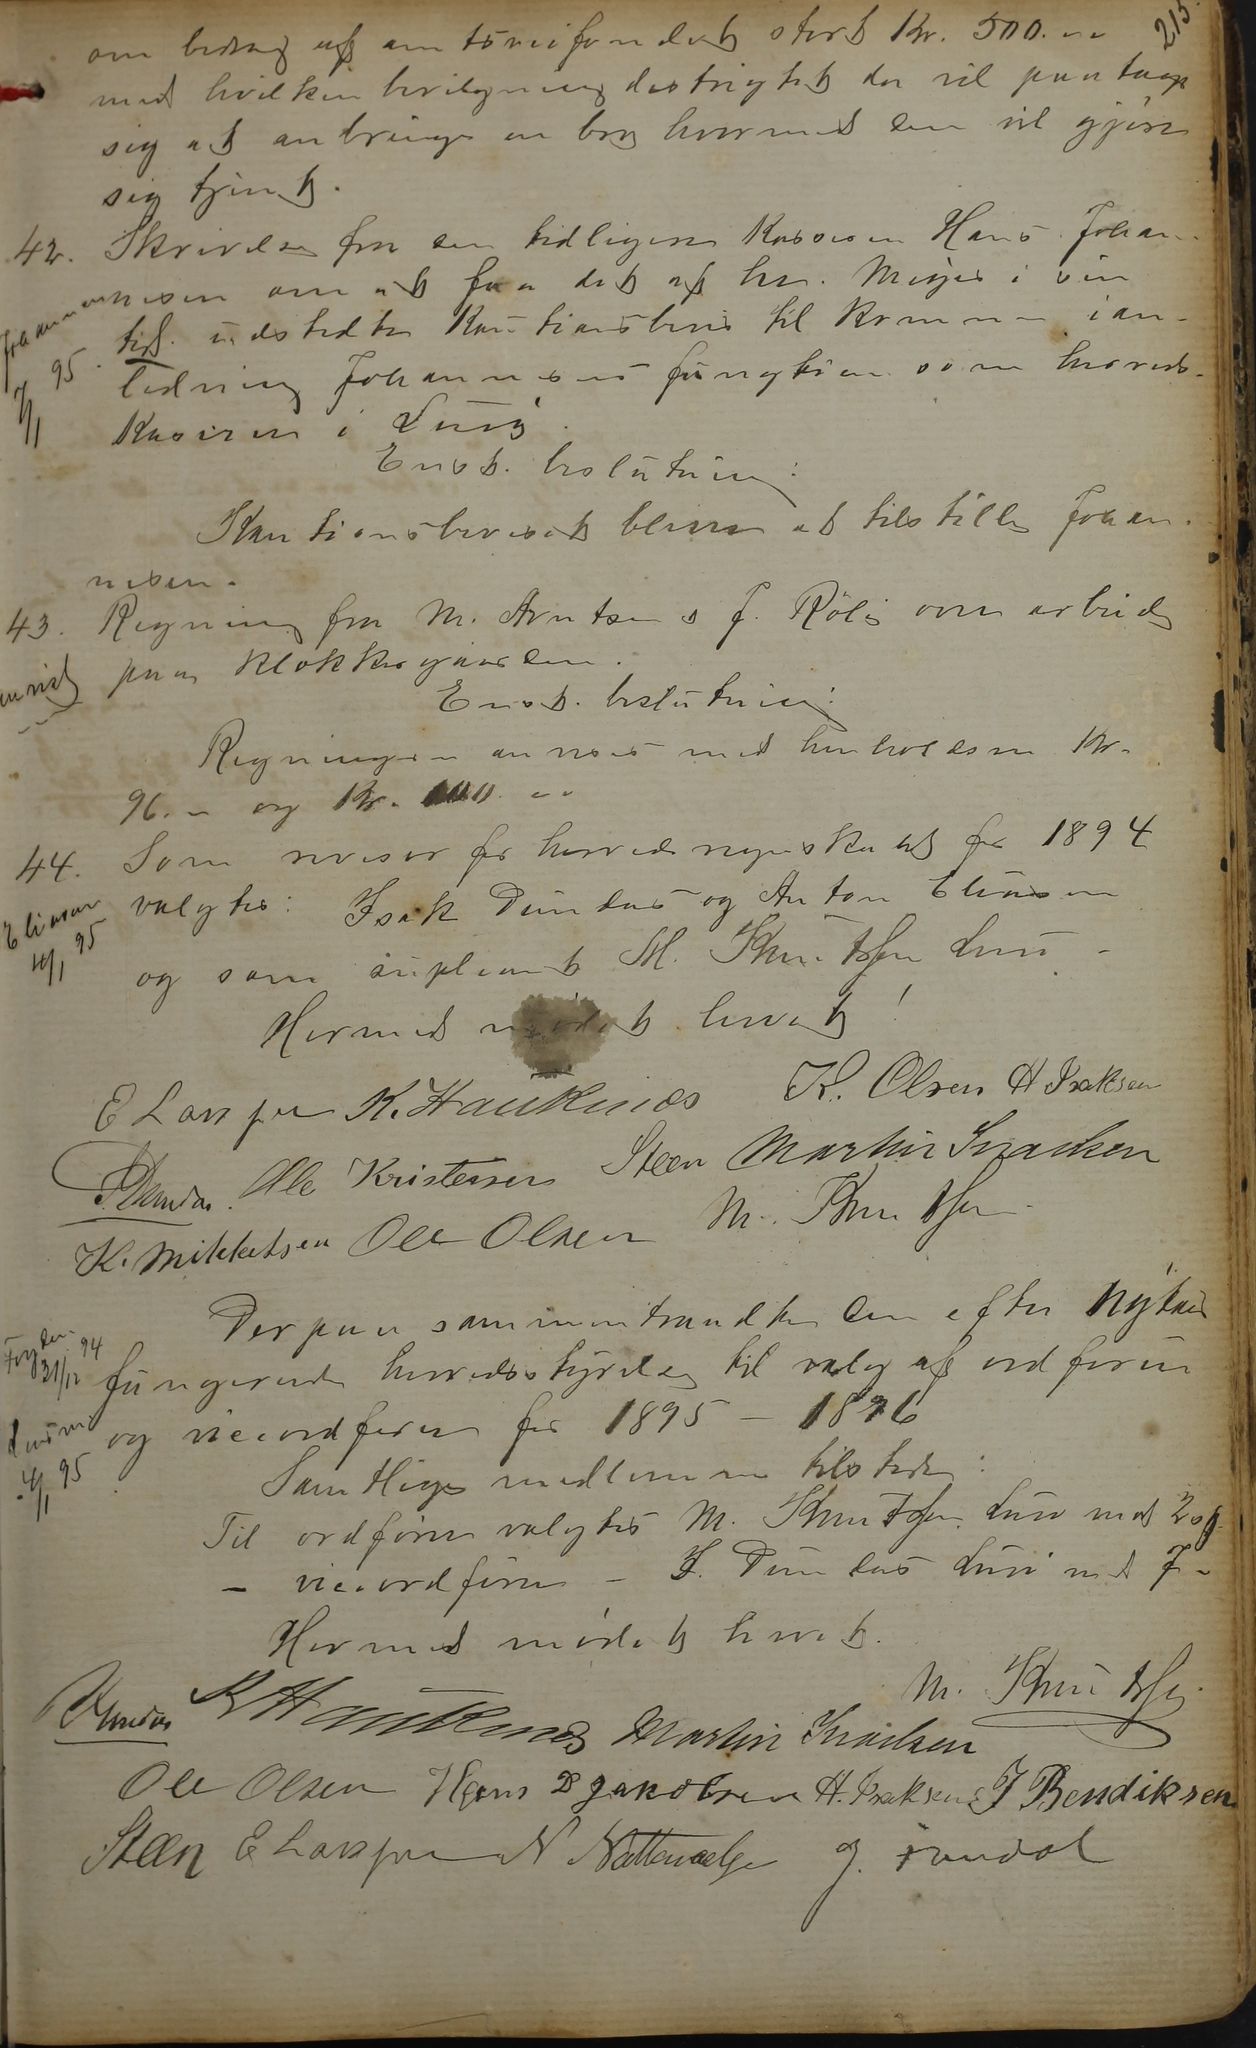 215.
om bidrag af amtsveifondet stort Kr. 500.00
med hvilken bevilgning distriktet da vil paatage
sig at anbringe en bro hvormed den vil gjøre
sig tjent.
42. Skrivelse fra den tidligere Kasserer Hans Johan-
nesen om at faa det af ham. Meyer i sin
tid. udstedte Kautionsbevis til Kommunen i an-
Johannesen
7/1 95.
ledning Johannesens fungtion som herreds-
Kaserer i
Enst. beslutning:
Kautionsbeviset bliver at tilstille Johan-
nesen.
43. Regning fra M. Arntsen & J. Røli om arbeide
anvist
paa Klokkergaarden.
Enst. beslutning:
Regningen anvises med henholdsvis Kr.
96.- og Kr. 00
44. Som revisor for herredsregnskabet for 1894
valgtes: Isak Dundas og Anton Eliasen
Eliasen
4/1 95
og som supleant M. Knutsen
Hermed mødet hevet!
E Larssen K. Haukenæs K. Olsen H Isaksen
I. Dundas. Ole Kristensen Steen Martin Isaksen
K. Mikkelsen Ole Olsen M. Knutsen
Derpaa sammentraadte den efter Nytaar
Fogden
31/12 94
fungerende herredsstyrelse til valg af ordfører
og viceordfører for 1895 - 1896
4/1 95
Samtlige medlemmer tilstede:
Til ordfører valgtes M. Knutsen med
- viceordfører - I. Dundas med 7 -
Hermed mødet hevet.
M. Knutsen
I Dundas K Haukenæs Martin Isaksen
Ole Olsen Hans D Jakobsen H. Isaksen J Bendiksen
Steen E Larssen N